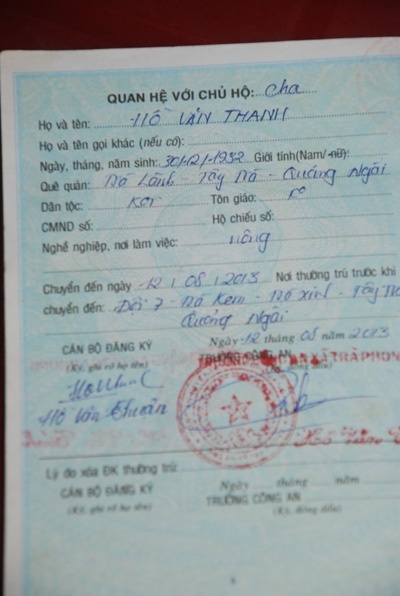 QUAN HỆ VỚI CHỦ HỘ: Cha
Họ và tên: HỒ VĂN THANH
Họ và tên gọi khác (nếu có):
Ngày, tháng, năm sinh: 30/12/1932 Giới tính(Nam/nữ):
Quê quán: Trà Lãnh - Tây Trà - Quảng Ngãi
Dân tộc: Kor Tôn giáo:
CMND số: Hộ chiếu số:
Nghề nghiệp, nơi làm việc: nông
Chuyển đến ngày 12/08/2013 Nơi thường trú trước khi
chuyển đến: Đội 7 - Trà Kem - Trà Xinh - Tây
Quảng Ngãi
Ngày 12 tháng 08 năm 2013
CÁN BỘ ĐĂNG KÝ TRƯỞNG CÔNG AN XÃ TRÀ PHON
(Ký, ghi rõ họ tên) (Ký, đóng dấu)
Hồ Văn Thuận
Hồ Văn
Lý do xóa ĐK thường trú:
Ngày tháng năm
CÁN BỘ ĐĂNG KÝ TRƯỞNG CÔNG AN
(Ký, ghi rõ họ tên) (Ký, đóng dấu)